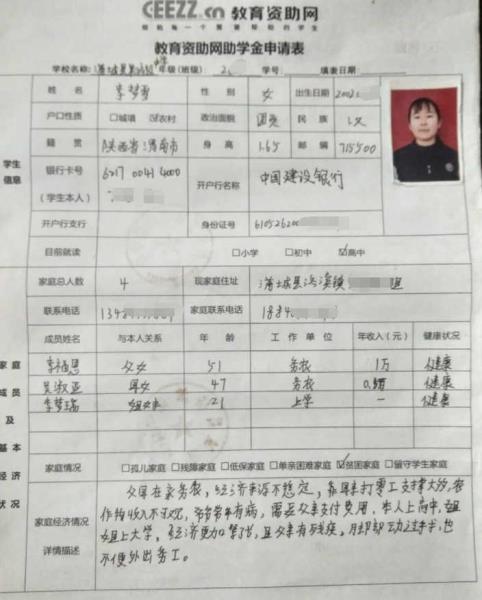 CEEZZ.cn 教育资助网
教育资助网助学金申请表
学校名称: 年级(班级): 2 学号: 填表日期:
姓名 李梦 性别 女 出生日期 2002
户口性质 □城镇 ☑农村 政治面貌 团员 民族 汉
籍贯 陕西省渭南市 身高 1.65 邮编 715500
学生信息
银行卡号 (学生本人) 6217 0041 4000 开户行名称 中国建设银行
开户行支行 身份证号 610526200
目前就读 □小学 □初中 ☑高中
家庭总人数 4 现家庭住址 蒲城县 镇 组
联系电话 134 家庭联系电话 1884
成员姓名 与本人关系 年龄 工作单位 年收入(元) 健康状况
李福恩 父女 51 务农 1万 健康
吴淑亚 母女 47 务农 健康
李梦瑞 姐妹 21 上学 一 健康
家庭成员及基本经济状况
家庭情况 □孤儿家庭 □残障家庭 □低保家庭 □单亲困难家庭 ☑贫困家庭 □留守学生家庭
家庭经济情况详情描述
父母在家务农,经济来源不稳定,靠 打零工支撑大致,农
作物收入不 , 常年有病,需要父亲支付费用,本人上高中,姐
姐上大学,经济更加 ,且父亲有残疾, 动过手术,也
不便外出务工。